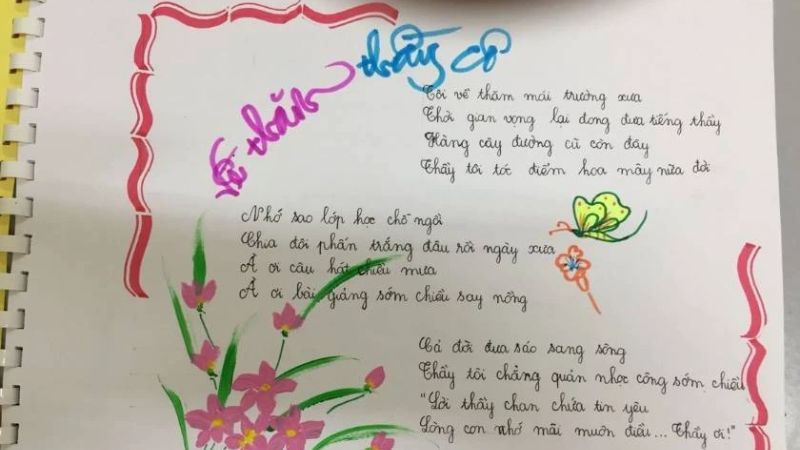 Về thăm thầy cô
Tôi về thăm mái trường xưa
Thời gian vọng lại dong đưa tiếng thầy
Hàng cây đường cũ còn đây
Thầy tôi tóc điểm hoa mây nửa đời
Nhớ sao lớp học chỗ ngồi
Chia đôi phấn trắng đâu rồi ngày xưa
À ơi câu hát chiều mưa
À ơi bài giảng sớm chiều say nồng
Cả đời đưa sáo sang sông
Thầy tôi chẳng quản nhọc công sớm chiều
"Lời thầy chan chứa tin yêu
Lòng con nhớ mãi muôn điều... Thầy ơi!"